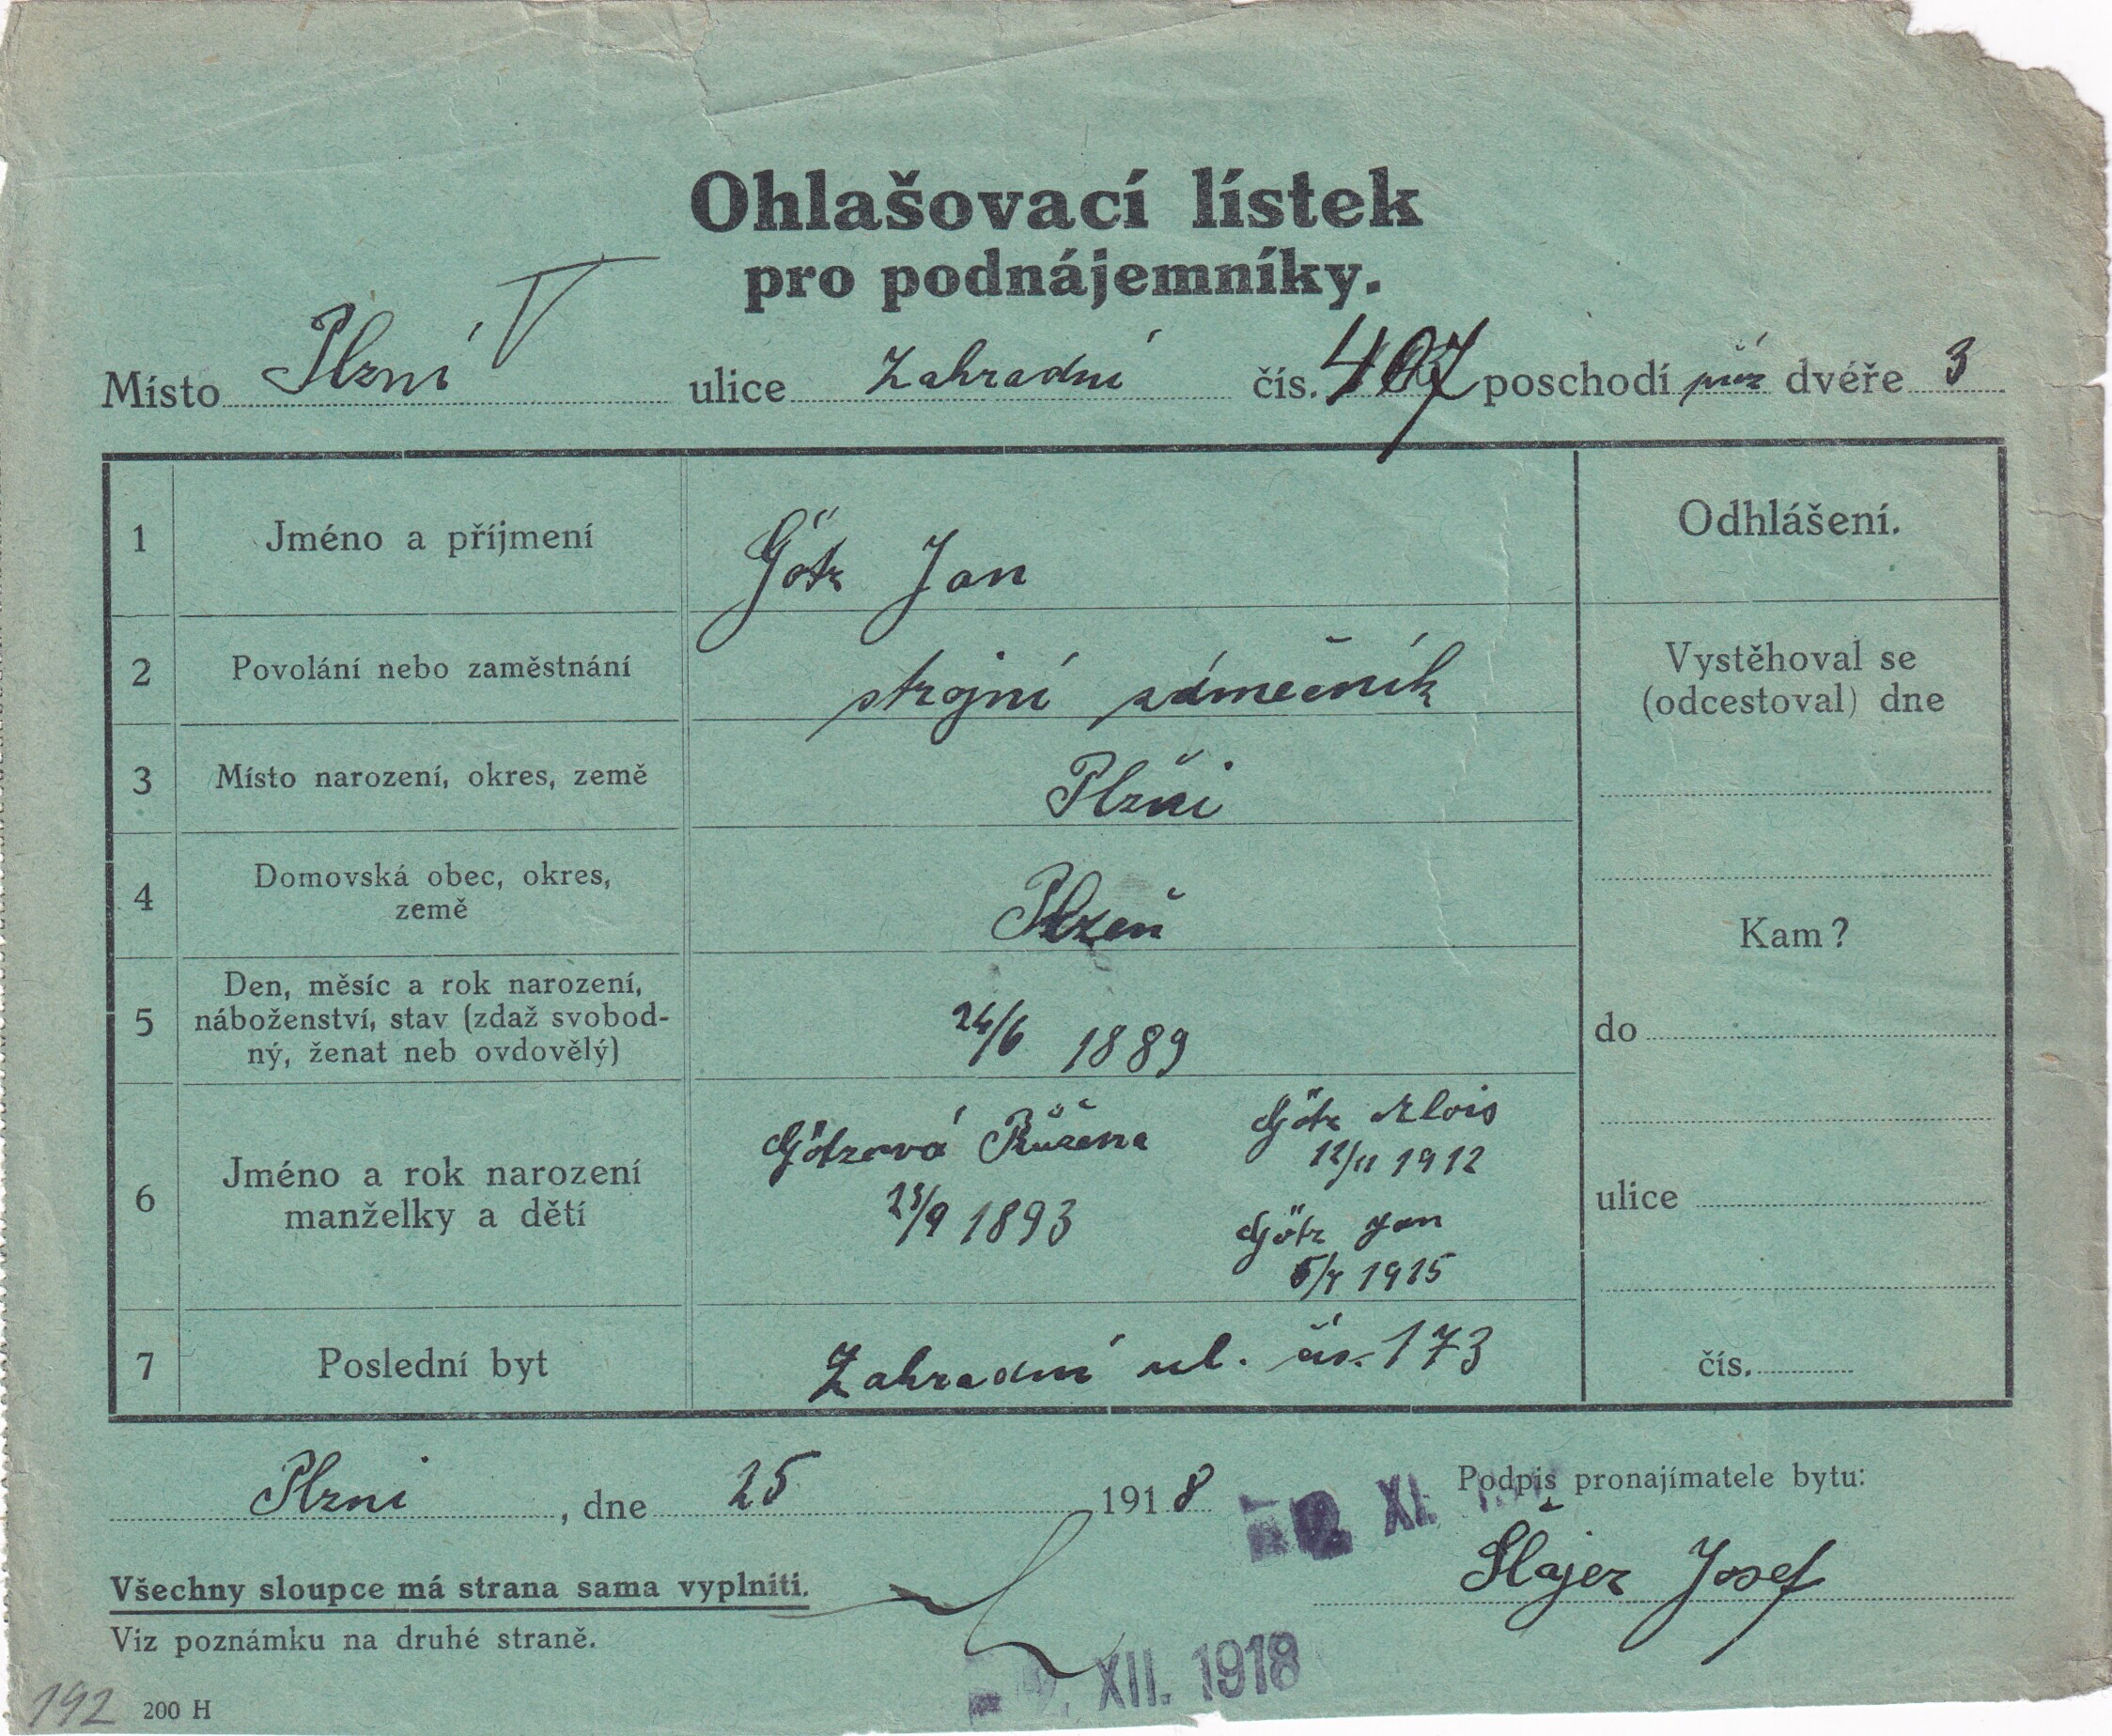 Ohlašovací lístek
pro podnájemníky.
Místo Plzni V ulice Zahradní čís. 407 poschodí příz dvéře 3
1 Jméno a příjmení Götz Jan
Odhlášení.
2 Povolání nebo zaměstnání strojní zámečník
Vystěhoval se
(odcestoval) dne
3 Místo narození, okres, země Plzňi
4 Domovská obec, okres,
země Plzeň
Kam?
5 Den, měsíc a rok narození,
náboženství, stav (zdaž svobod-
ný, ženat neb ovdovělý) 24/6 1889
do
6 Jméno a rok narození
manželky a dětí
Götzová Růžena
23/9 1893
Götz Alois
12/11 1912
Götz Jan
5/4 1915
ulice
7 Poslední byt Zahradní ul. čís. 173
čís.
Plzni, dne 25 1918
XI.
Podpis pronajímatele bytu:
Šlajer Josef
Všechny sloupce má strana sama vyplniti.
Viz poznámku na druhé straně.
XII. 1918
192 200 H